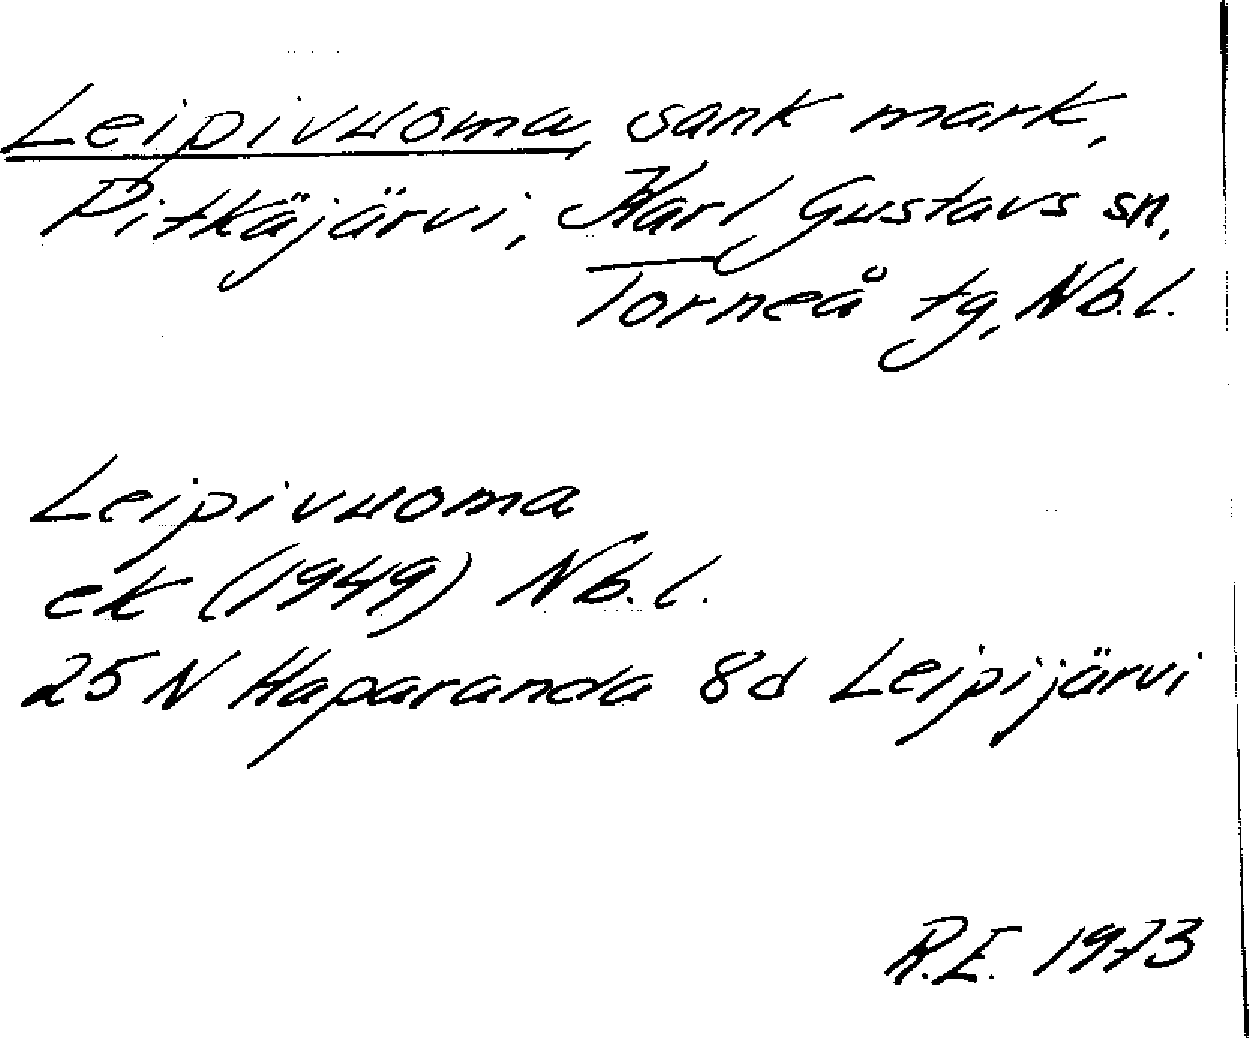 Leipivuoma, sank mark,
Pitkäjärvi, Karl Gustavs sn,
Torneå tg, Nb.l.
Leipivuoma
ek (1949) Nb.l.
25 N Haparanda 8d Leipijärvi
R.E. 1973